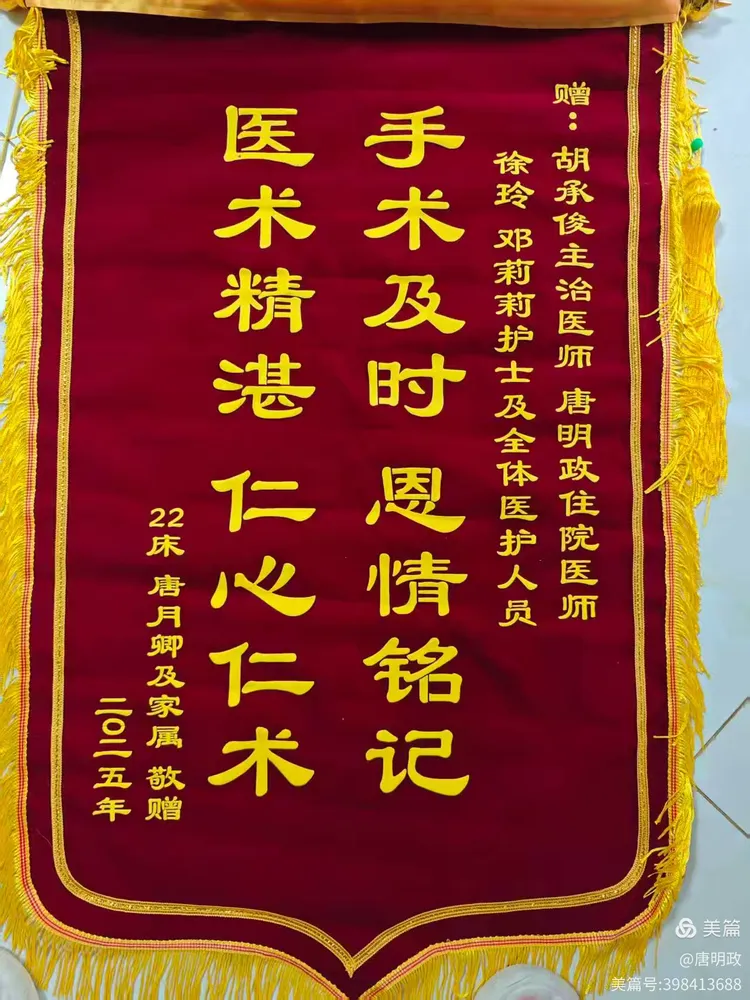 赠：胡承俊主治医师 唐明政住院医师
徐玲 邓莉莉护士及全体医护人员
手术及时 恩情铭记
医术精湛 仁心仁术
22床 唐月卿及家属 敬赠
二〇二五年
美篇
@唐明政
美篇号:398413688